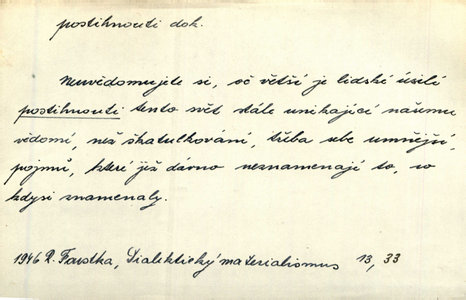 postihnouti dok.
Neuvědomujete si, oč větší je lidské úsilí
postihnouti tento svět stále unikající našemu
vědomí, než škatulkování, třeba sebe umnější,
pojmů, které již dávno neznamenají to, co
kdysi znamenaly.
1946 R. Faustka, Dialektický materialismus 13, 33